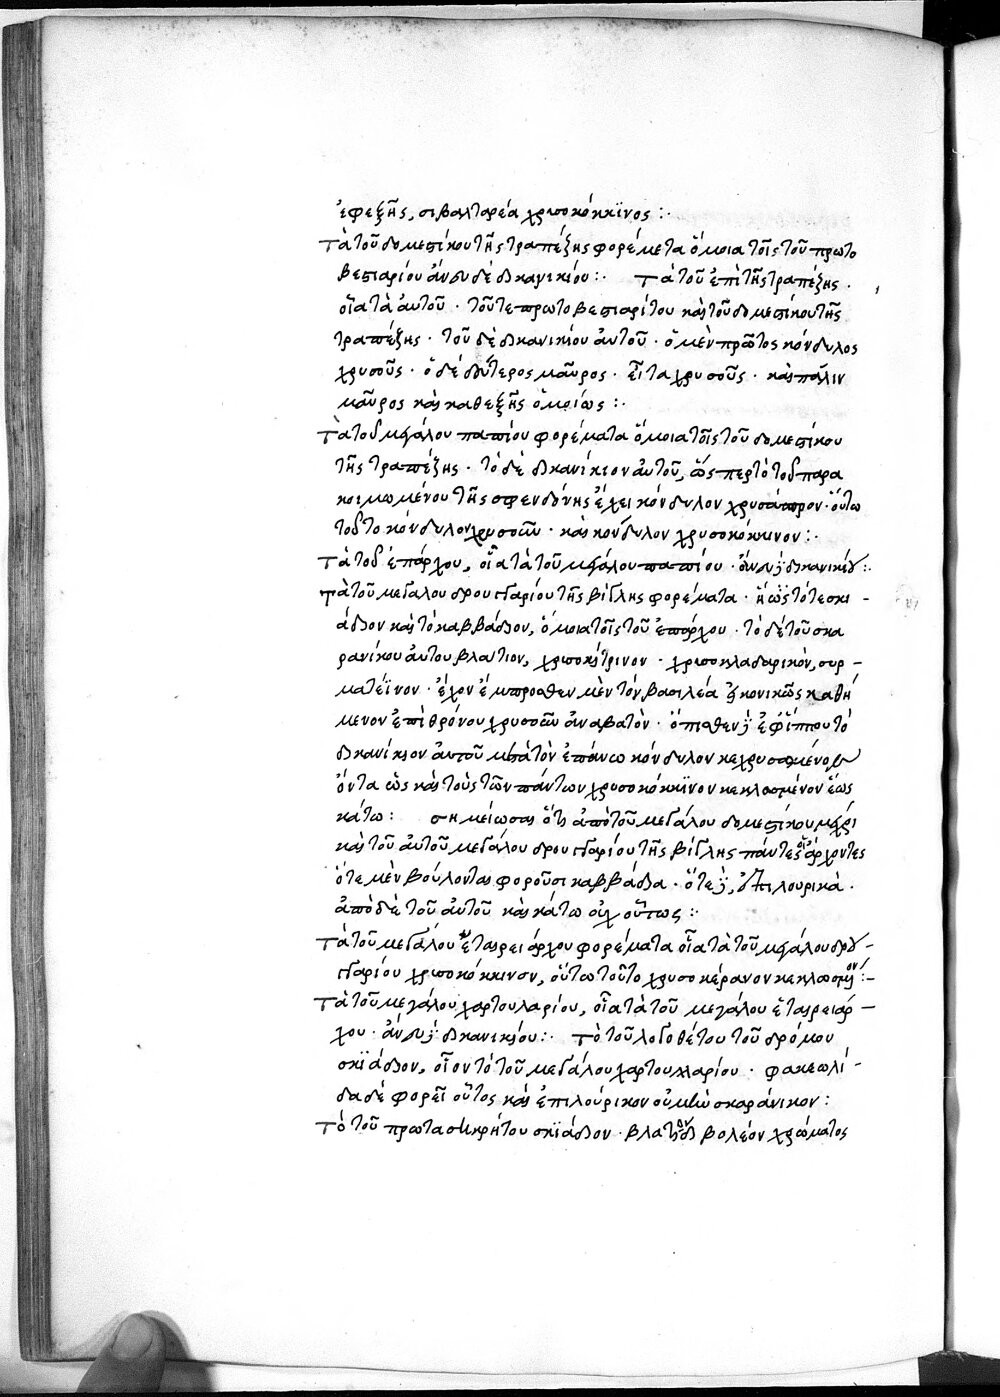 ἐφεξῆς, σιβαλταρέα χρυσοκόκκϊνος :·
Τὰ τοῦ δομεστίκου τῆς τραπέζης φορέματα ὅμοια τοῖς τοῦ πρωτο
βεστιαρίου ἄνευ δὲ δικανικίου :· Τὰ τοῦ ἐπὶ τῆς τραπέζης ·
οἷα τὰ αὐτοῦ · τοῦ τε πρωτοβεστιαρίτου καὶ τοῦ δομεστίκου τῆς
τραπέζης · τοῦ δὲ δικανικίου αὐτοῦ · ὁ μὲν πρῶτος κόνδυλος
χρυσοῦς · ὁ δὲ δεύτερος μαῦρος · εἶτα χρυσοῦς · καὶ πάλιν
μαῦρος καὶ καθεξῆς ὁμοίως :·
Τὰ τοῦ μεγάλου παπίου φορέματα ὅμοια τοῖς τοῦ δομεστίκου
τῆς τραπέζης · τὸ δὲ δικανίκιον αὐτοῦ, ὥσπερ τὸ τοῦ παρα
κοιμωμένου τῆς σφενδόνης ἔχει κόνδυλον χρυσάσπρον · οὕτω
τοῦτο κόνδυλον χρυσοῦν · καὶ κόνδυλον χρυσοκόκκινον :·
Τὰ τοῦ ἐπάρχου, οἷα τὰ τοῦ μεγάλου παπίου · ἄνευ δικανικίου :·
Τὰ τοῦ μεγάλου δρουγγαρίου τῆς βίγλης φορέματα · ἤως τό τε σκι -
άδιον καὶ τὸ καββάδιον, ὅμοια τοῖς τοῦ ἐπάρχου · τὸ δὲ τοῦ σκα
ρανίκου αὐτοῦ βλατίον, χρυσοκίτρινον · χρυσοκλαδαρικόν, συρ -
ματέϊνον · ἔχον ἔμπροσθεν μὲν τὸν βασιλέα εἰκονικῶς καθή
μενον ἐπὶ θρόνου χρυσοῦν ἀναβατὸν · ὄπισθεν δὲ ἐφίππου τὸ
δικανίκιον αὐτοῦ μετὰ τὸν ἐπάνω κόνδυλον κεχρυσωμένον
ὄντα ὡς καὶ τοὺς τῶν πάντων χρυσοκόκκϊνον κεκλωσμένον ἕως
κάτω : σημείωσαι ὅτι ἀπὸ τοῦ μεγάλου δομεστίκου μέχρι
καὶ τοῦ αὐτοῦ μεγάλου δρουγγαρίου τῆς βίγλης πάντες οἱ ἄρχοντες
ὅτε μὲν βούλονται φοροῦσι καββάδια · ὅτε δὲ, ἐπιλουρικὰ ·
ἀπὸ δὲ τοῦ αὐτοῦ καὶ κάτω οὐχ οὕτως :·
Τὰ τοῦ μεγάλου ἑταιρειάρχου φορέματα οἷα τὰ τοῦ μεγάλου δρου -
γγαρίου χρυσοκόκκινον, οὕτω τοῦτο χρυσοκέρανον κεκλωσμένον :-
Τὰ τοῦ μεγάλου χαρτουλαρίου, οἷα τὰ τοῦ μεγάλου ἑταιρειάρ -
χου · ἄνευ δὲ δικανικίου :· Τὸ τοῦ λογοθέτου τοῦ δρόμου
σκϊάδιον, οἷον τὸ τοῦ μεγάλου χαρτουλλαρίου · φακεωλί -
δα δὲ φορεῖ οὗτος καὶ ἐπιλούρικον οὐ μὴν σκαράνικον :
Τὸ τοῦ πρωτασηκρήτου σκϊάδιον · βλατίου βολεόν χρώματος